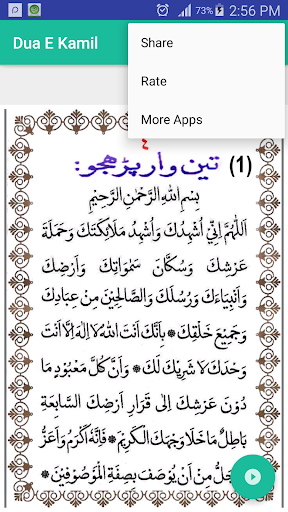 73% 2:56 PM
Dua E Kamil
Share
Rate
More Apps
٤
(1) تين وار پڑھجو:
بِسْمِ اللهِ الرَّحْمٰنِ الرَّحِيْمِ
اَللّٰهُمَّ اِنِّيْ اُشْهِدُكَ وَاُشْهِدُ مَلَآئِكَتَكَ وَحَمَلَةَ
عَرْشِكَ وَسُكَّانَ سَمٰوَاتِكَ وَاَرْضِكَ
وَاَنْبِيَآءَكَ وَرُسُلَكَ وَالصَّالِحِيْنَ مِنْ عِبَادِكَ
وَجَمِيْعَ خَلْقِكَ * بِاَنَّكَ اَنْتَ اللهُ لَا اِلٰهَ اِلَّا اَنْتَ
وَحْدَكَ لَا شَرِيْكَ لَكَ * وَاَنَّ كُلَّ مَعْبُوْدٍ مَا
دُوْنَ عَرْشِكَ اِلٰى قَرَارِ اَرْضِكَ السَّابِعَةِ
بَاطِلٌ مَا خَلَا وَجْهَكَ الْكَرِيْمَ * فَاِنَّهُ اَكْرَمُ وَاَعَزُّ
وَاَجَلُّ مِنْ اَنْ يُوْصَفَ بِصِفَةِ الْمَوْصُوْفِيْنَ *